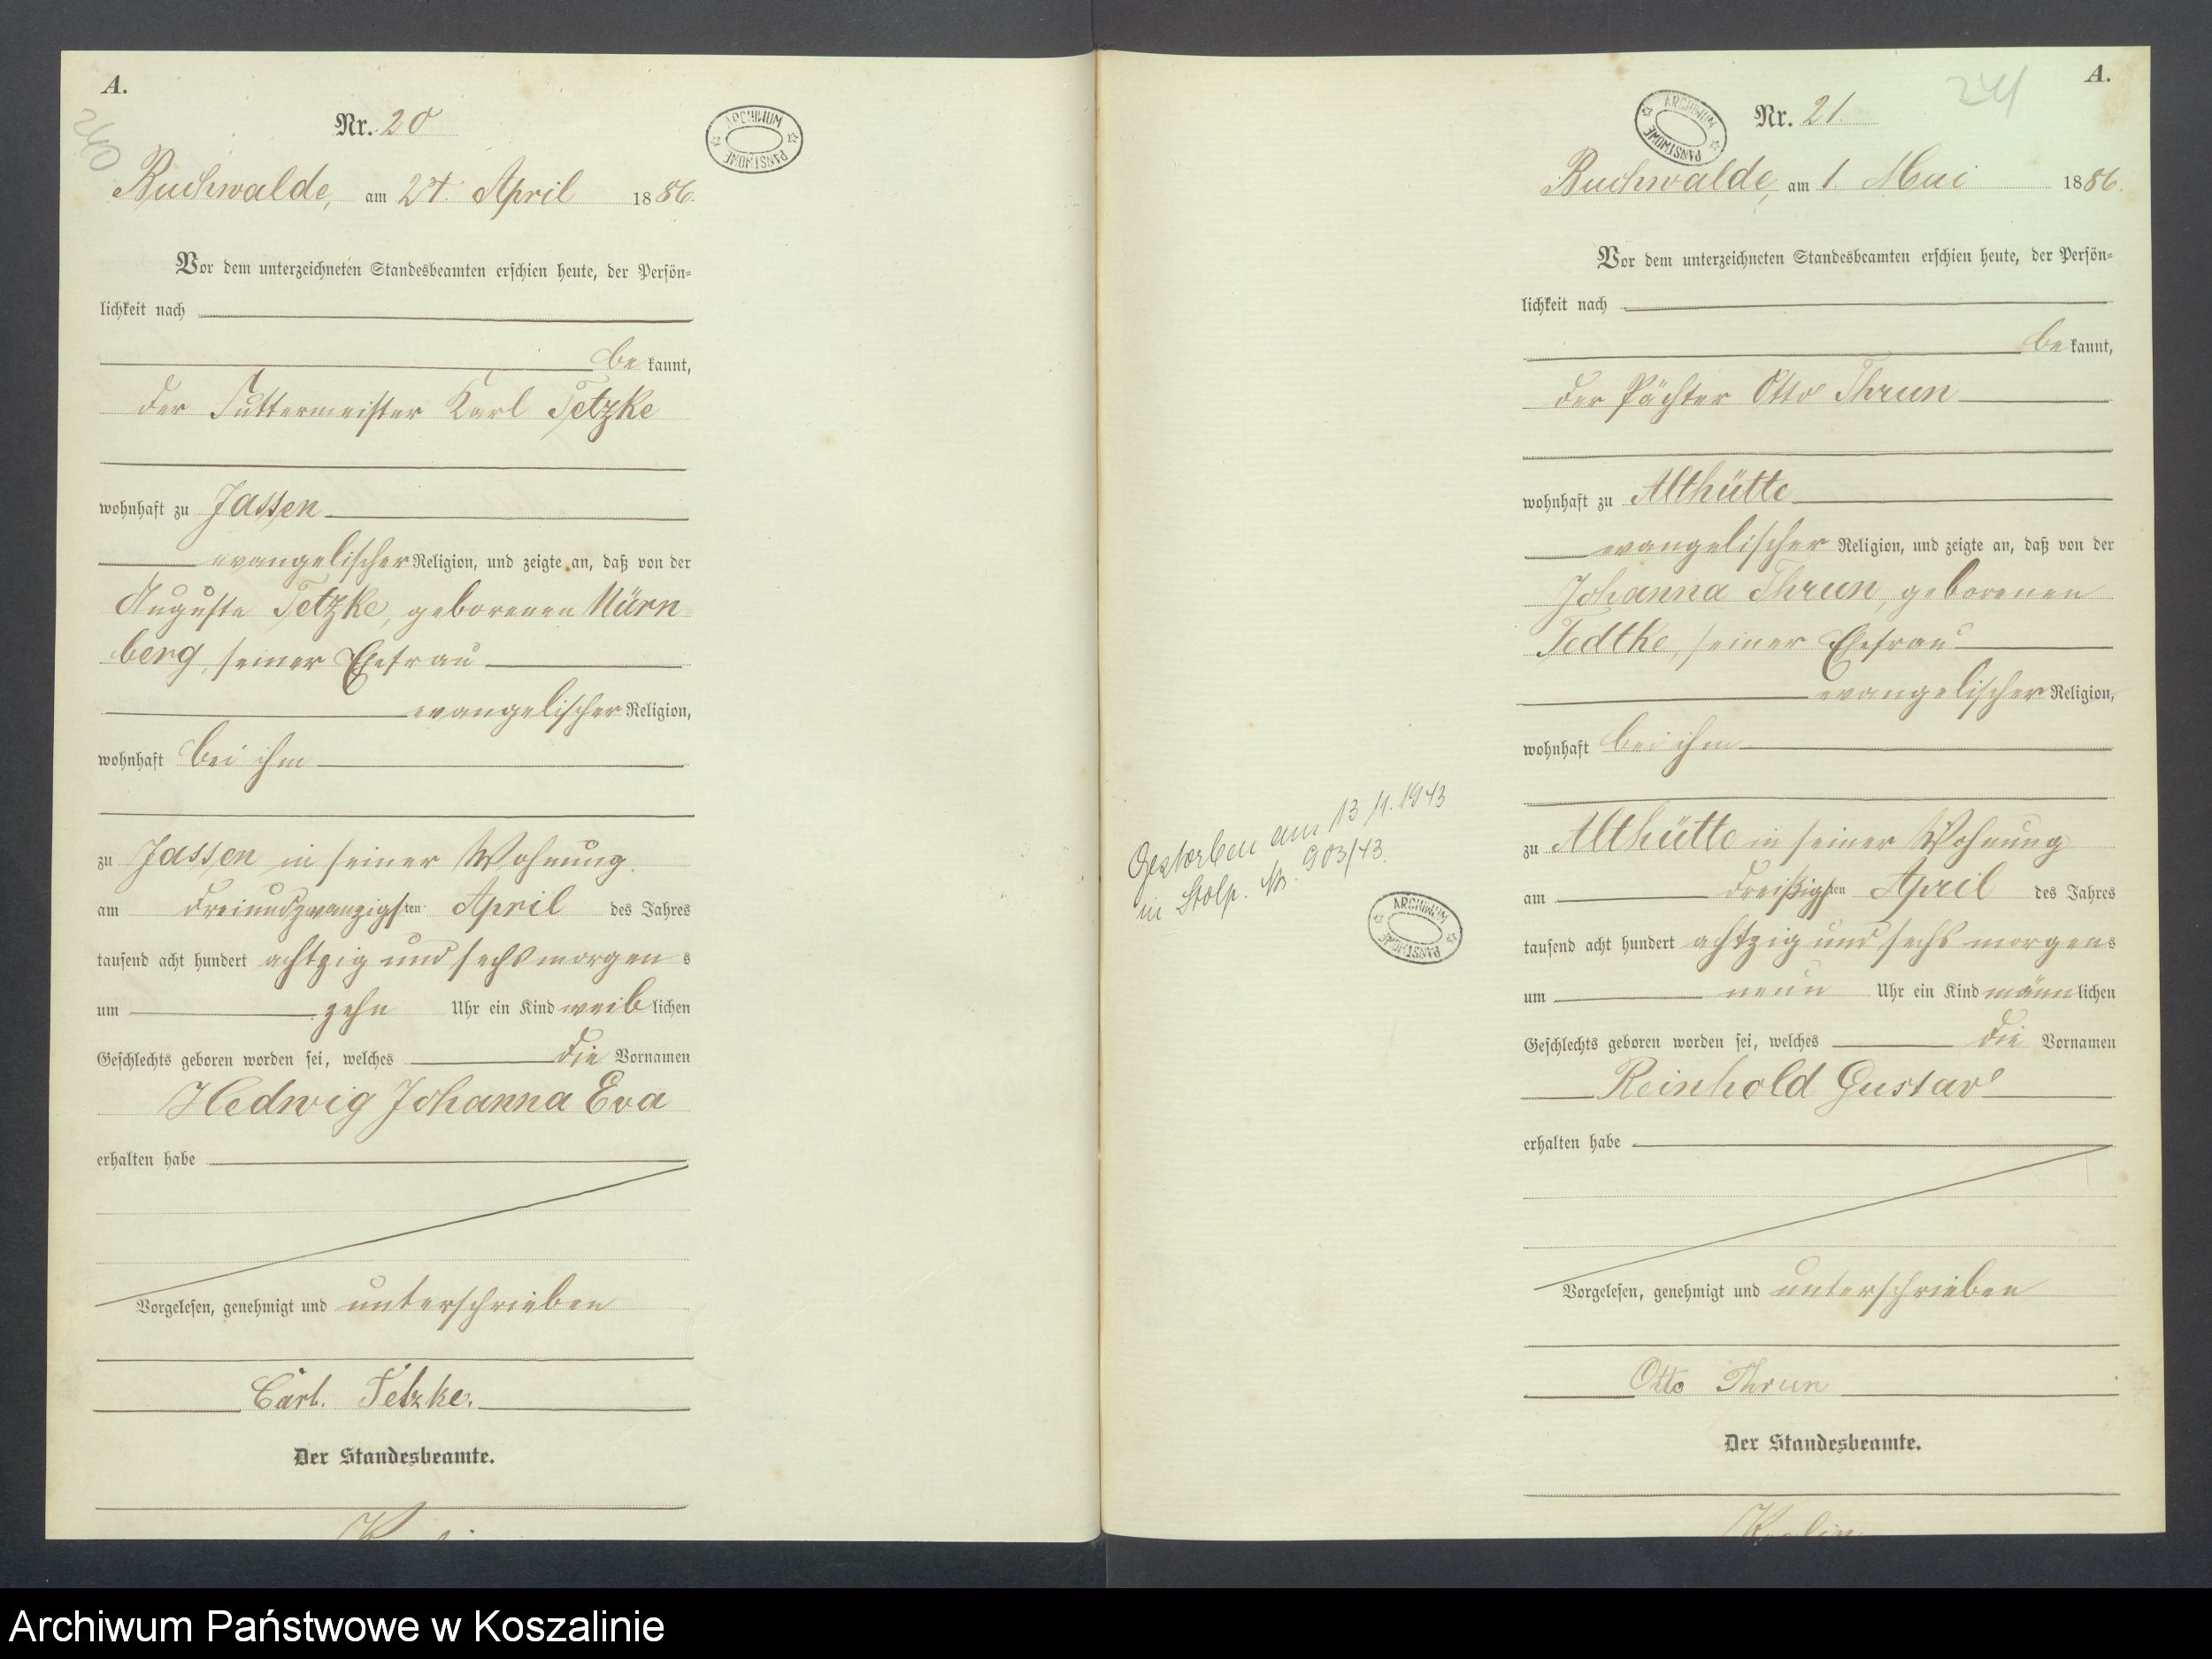 A.
240
Nr. 20
ARCHIWUM PAŃSTWOWE
Buchwalde, am 27. April 1886.
Vor dem unterzeichneten Standesbeamten erschien heute, der Persön=
lichkeit nach
be kannt,
der Futtermeister Karl Tetzke
wohnhaft zu Jassen
evangelischer Religion, und zeigte an, daß von der
Auguste Tetzke, geborenen Nürn-
berg, seiner Ehefrau
evangelischer Religion,
wohnhaft bei ihm
zu Jassen in seiner Wohnung
am dreiundzwanzigsten April des Jahres
tausend acht hundert achtzig und sechs morgen s
um zehn Uhr ein Kind weib lichen
Geschlechts geboren worden sei, welches die Vornamen
Hedwig Johanna Eva
erhalten habe
Vorgelesen, genehmigt und unterschrieben
Carl. Tetzke.
Der Standesbeamte.
A.
241
ARCHIWUM PAŃSTWOWE
Nr. 21.
Buchwalde, am 1. Mai 1886.
Vor dem unterzeichneten Standesbeamten erschien heute, der Persön=
lichkeit nach
be kannt,
der Pächter Otto Thrun
wohnhaft zu Althütte
evangelischer Religion, und zeigte an, daß von der
Johanna Thrun, geborenen
Tedtke, seiner Ehefrau
evangelischer Religion,
wohnhaft bei ihm
zu Althütte in seiner Wohnung
am dreißigsten April des Jahres
tausend acht hundert achtzig und sechs morgens
um neun Uhr ein Kind männ lichen
Geschlechts geboren worden sei, welches die Vornamen
Reinhold Gustav
erhalten habe
Vorgelesen, genehmigt und unterschrieben
Otto Thrun
Der Standesbeamte.
Gestorben am 13.11.1943
in Stolp. Nr. 903/43.
ARCHIWUM PAŃSTWOWE
Archiwum Państwowe w Koszalinie